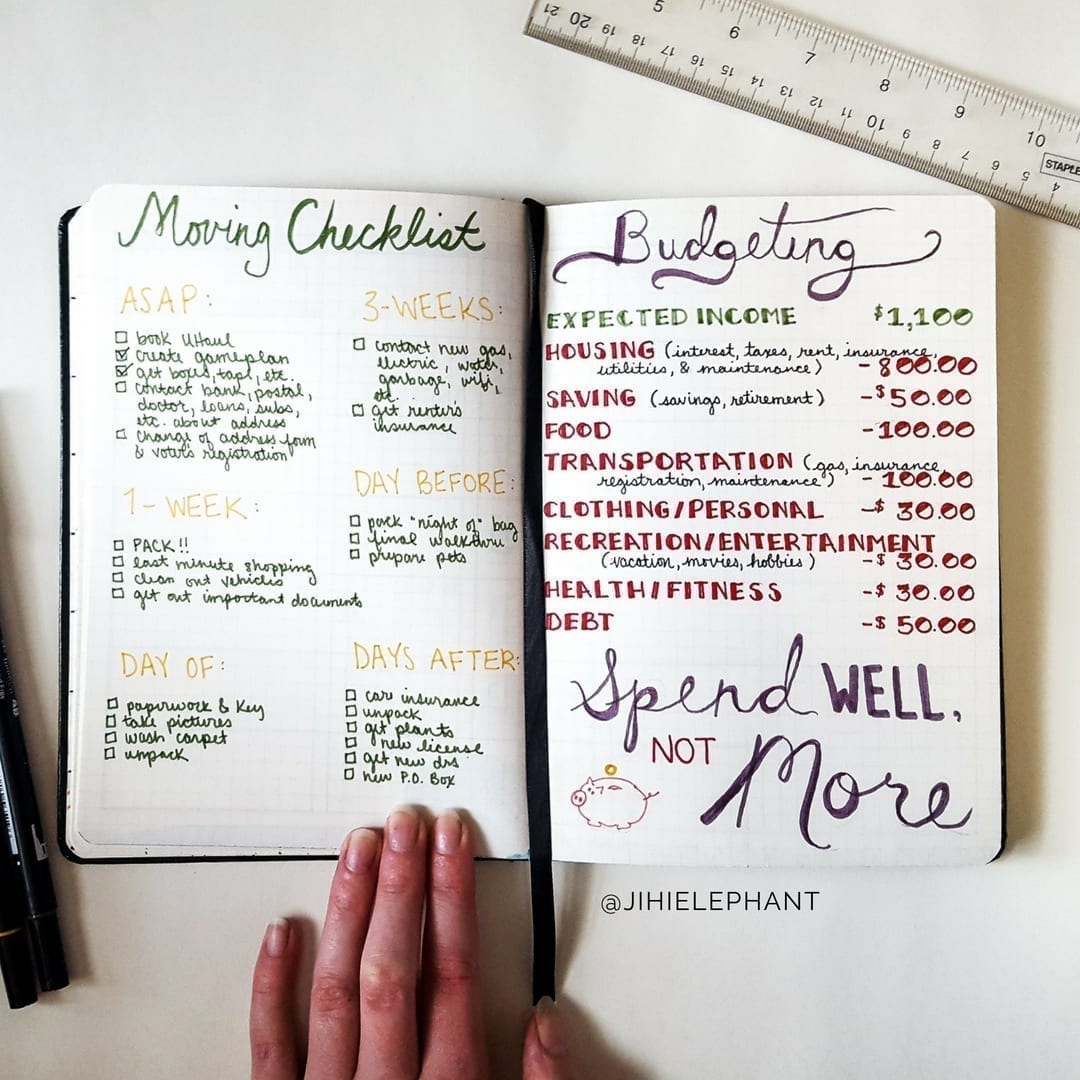 Moving Checklist
ASAP:
book UHaul
create gameplan
get boxes, tape, etc.
contact bank, postal,
doctor, loans, subs,
etc. about address
change of address form
& voters registration
1-WEEK:
PACK!!
last minute shopping
clean out vehicles
get out important documents
DAY OF:
paperwork & key
take pictures
wash carpet
unpack
3-WEEKS:
contact new gas,
electric, water,
garbage, wifi,
etc.
get renters
insurance
DAY BEFORE:
pack "night of" bag
final walkthru
prepare pets
DAYS AFTER:
car insurance
unpack
get plants
" new license
get new drs
new P.O. Box
Budgeting
EXPECTED INCOME $1,100
HOUSING (interest, taxes, rent, insurance,
utilities, & maintenance) -800.00
SAVING (savings, retirement) -$50.00
FOOD -100.00
TRANSPORTATION (gas, insurance,
registration, maintenance) -100.00
CLOTHING/PERSONAL -$30.00
RECREATION/ENTERTAINMENT
(vacation, movies, hobbies) -$30.00
HEALTH/FITNESS -$30.00
DEBT -$50.00
Spend WELL,
NOT
More
@JIHIELEPHANT
5 6 7 8 9 10
21 20 19 18 17 16 15 14 13 12 11 10 9 8 7 6 5 4
STAPLE